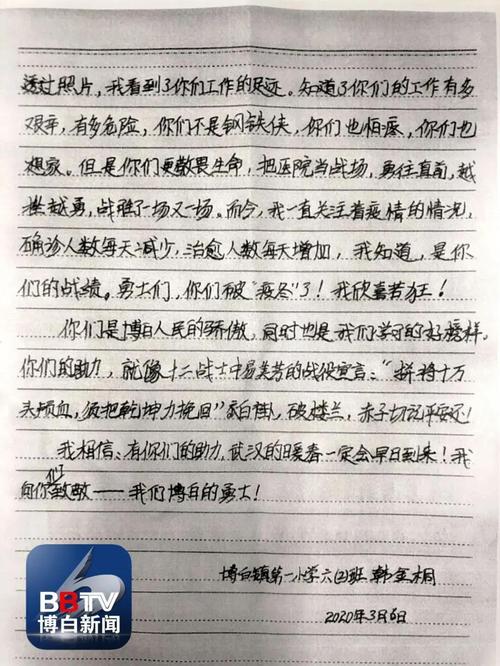 透过照片，我看到了你们工作的足迹。知道了你们的工作有多
艰辛，有多危险，你们不是钢铁侠，你们也怕疼，你们也
想家。但是你们更敬畏生命，把医院当战场，勇往直前，越
挫越勇，战胜了一场又一场。而今，我一直关注着疫情的情况，
确诊人数每天减少，治愈人数每天增加，我知道，是你
们的战绩。勇士们，你们破"疫"了！我欣喜若狂！
你们是博白人民的骄傲，同时也是我们学习的好榜样。
你们的助力，就像十二战士中易美芳的战役宣言："拼将十万
头颅血，须把乾坤力挽回"白褂，破楼兰，赤子切记平安还！
我相信、有你们的助力，武汉的暖春一定会早日到来！我
向你们致敬——我们博白的勇士！
博白镇第一小学六(2)班 韩金桐
2020年3月6日
BBTV
博白新闻